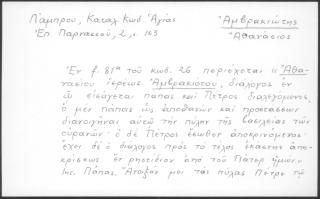 Λάμπρου, Καταλ. Κωδ. Ἁγίας
Ἐπ. Παρνασσοῦ, 2, 163
Ἀμβρακιώτης
Ἀθανάσιος
Ἐν f. 81α τοῦ κωδ. 26 περιέχεται "Ἀθα-
νασίου ἱερέως Ἀμβρακιότου, διάλογος ἐν
ᾧ εἰσάγεται πάπας καὶ Πέτρος διαλεγόμενοι.
ὁ μὲν πάπας ὡς ἀποθανὼν καὶ προστάσσων
διανοιγῆναι αὐτῷ τὴν πύλην τῆς βασιλείας τῶν
οὐρανῶν· ὁ δὲ Πέτρος ἔσωθεν ἀποκρινόμενος·
ἔχει δὲ ὁ διάλογος πρὸς τὸ τέλος ἑκάστης ἀπο-
κρίσεως ἓν ῥητείδιον ἀπὸ τοῦ Πάτερ ἡμῶν.
Inc. Πάπας. Ἄνοιξόν μοι τὰς πύλας Πέτρε